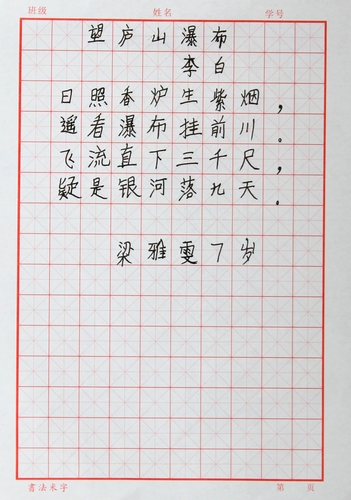 班级 姓名 学号
望庐山瀑布
李白
日照香炉生紫烟，
遥看瀑布挂前川。
飞流直下三千尺，
疑是银河落九天。
梁雅雯7岁
书法米字 第 页